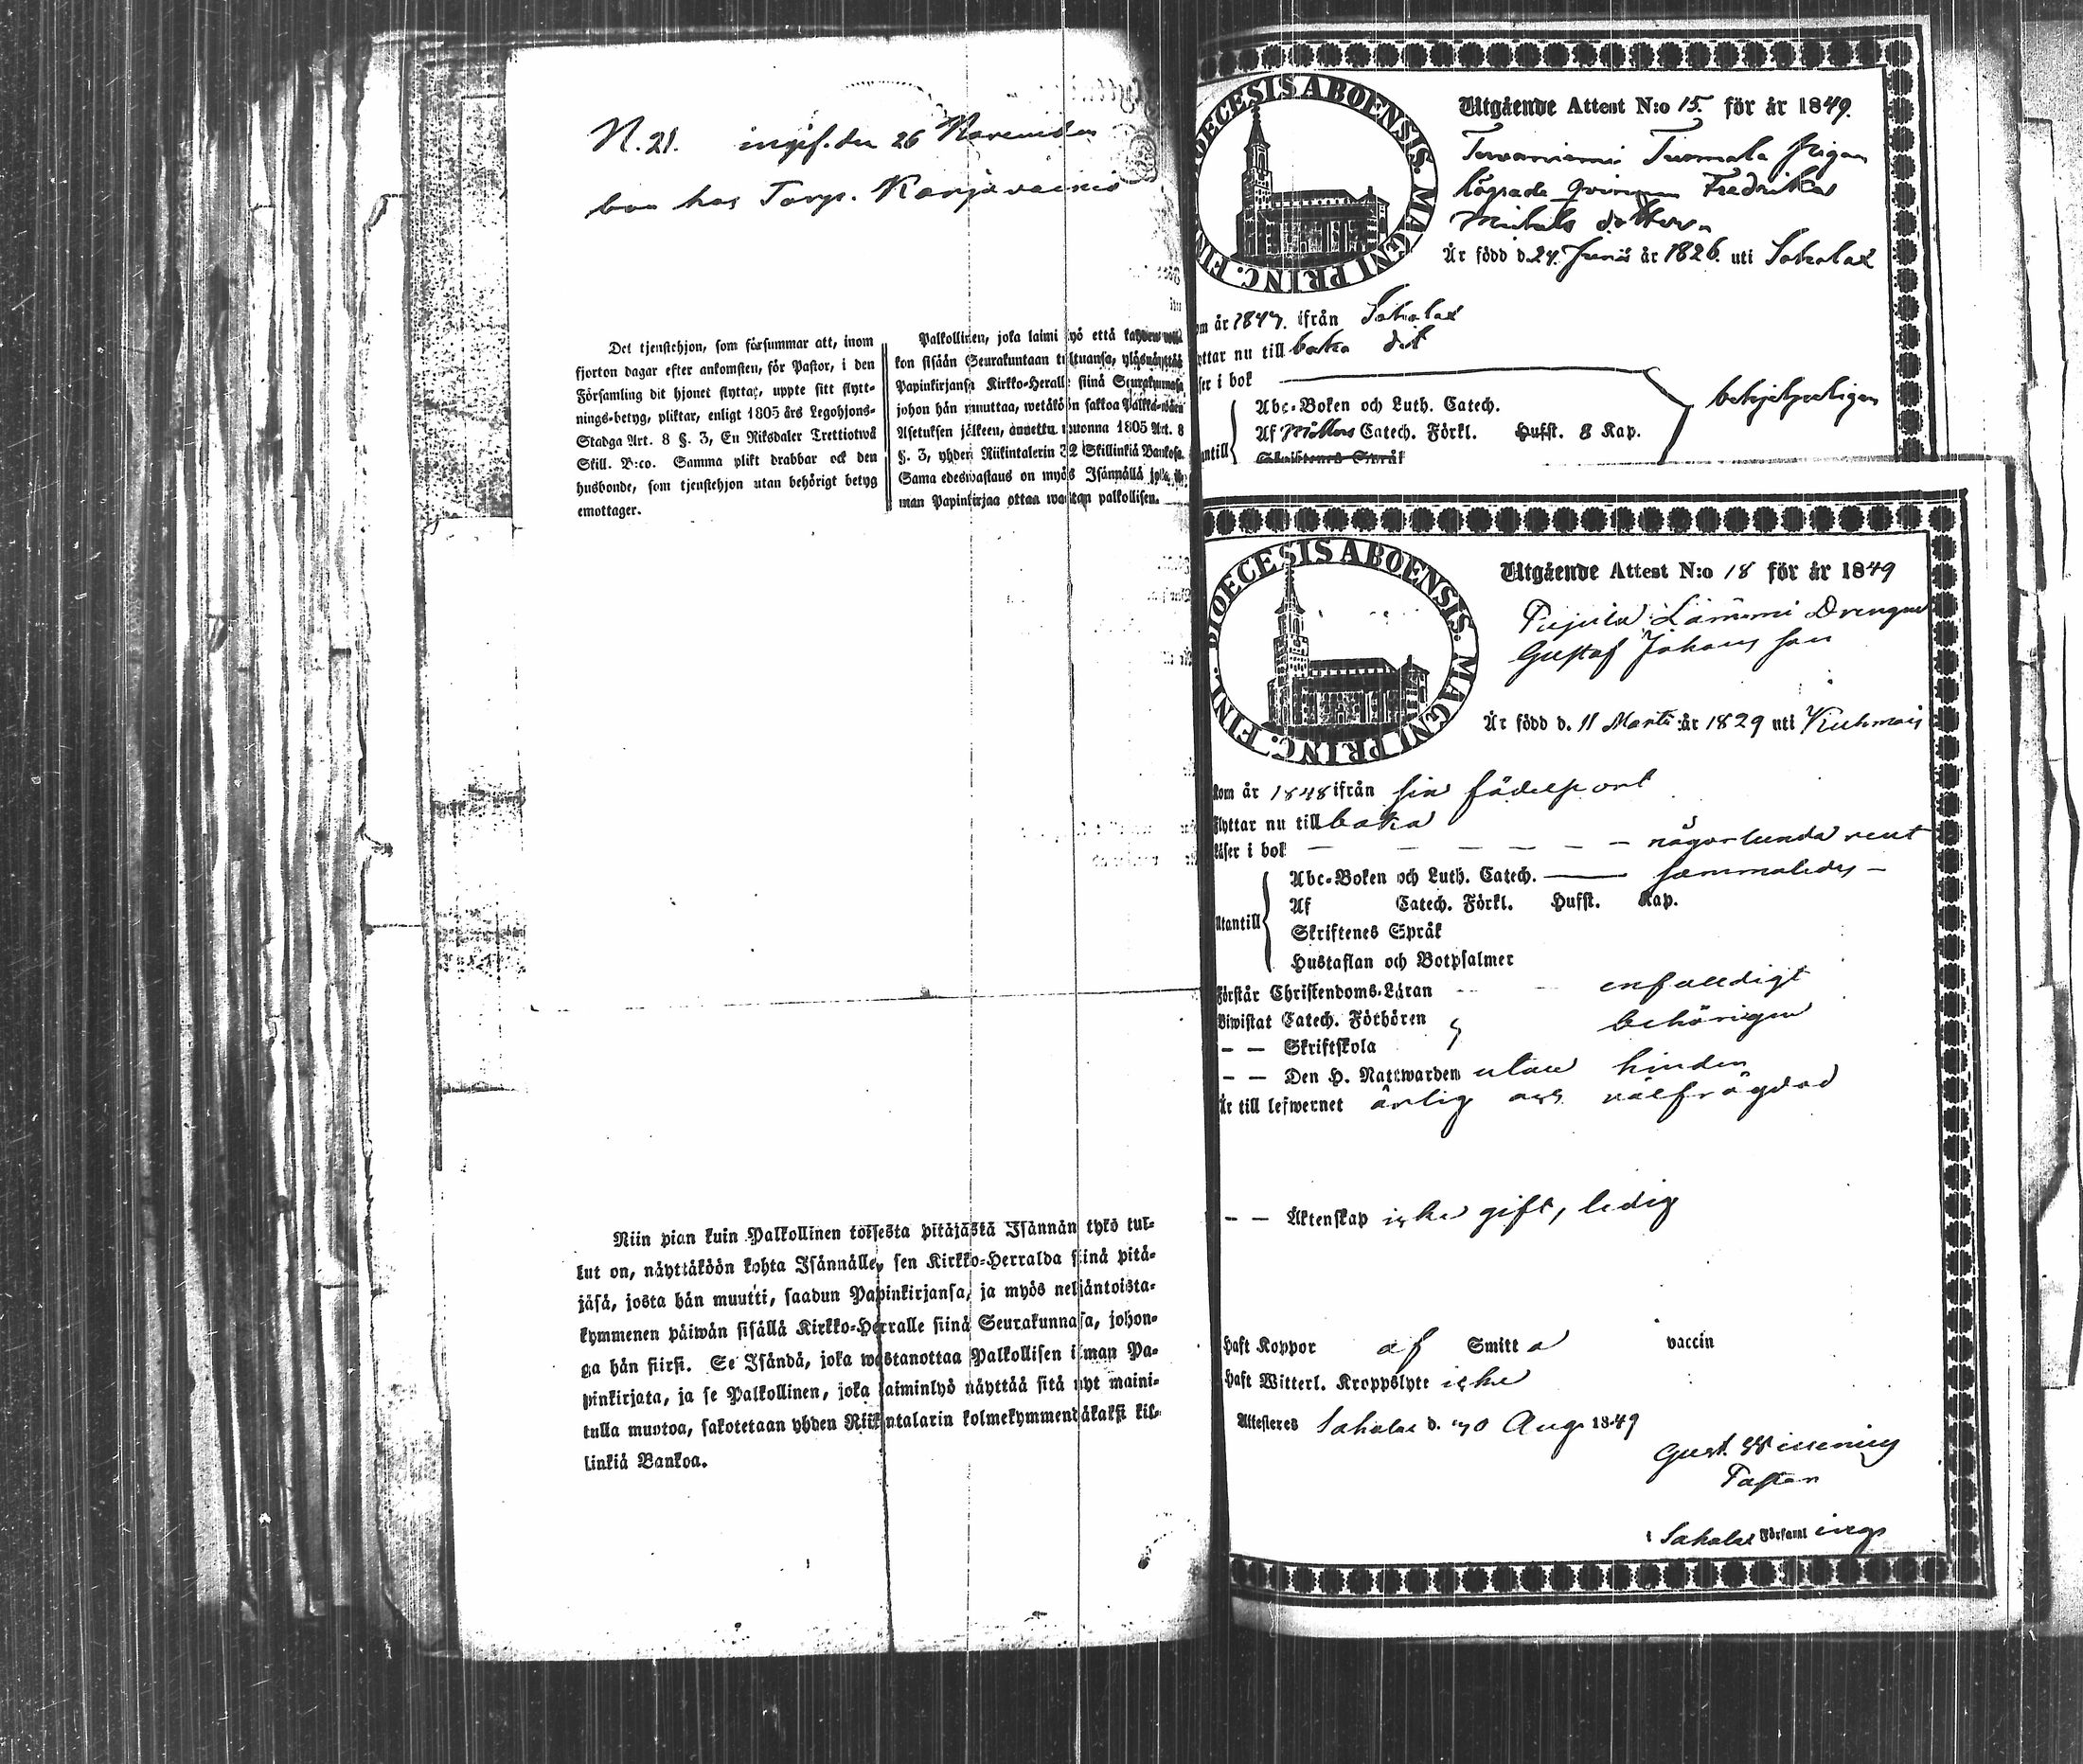 N. 21. den 26 November
boa hos Torp. Karjavainio
Det tjenstehjon, som försummar att, inom
fjorton dagar efter ankomsten, för Pastor, i den
Församling dit hjonet flyttat, uppte sitt flytt-
nings-betyg, pliktar, enligt 1805 års Legohjons-
Stadga Art. 8 §. 3, En Riksdaler Trettiotwå
Skill. B:co. Samma plikt drabbar ock den
husbonde, som tjenstehjon utan behörigt betyg
emottager.
Palkollinen, joka laimi lyö että
kon sisään Seurakuntaan tultuansa, ylösnäyttää
Papinkirjansa Kirkko-Heralle siinä Seurakunnasa
johon hän muuttaa, wetäköön sakkoa
Asetuksen jälkeen, annettu wuonna 1805 Art. 8
§. 3, yhden Riikintalerin 32 Skillinkiä Bankosa.
Sama edeswastaus on myös Isännällä joka
man Papinkirjaa ottaa wastan palkollisen.
Niin pian kuin Palkollinen toisesta pitäjästä Isännän tykö tul-
lut on, näyttäköön kohta Isännälle, sen Kirkko-Herralda siinä pitä-
jäsä, josta hän muutti, saadun Papinkirjansa, ja myös neljäntoista-
kymmenen päiwän sisällä Kirkko-Herralle siinä Seurakunnasa, johon-
ga hän siirsi. Se Isändä, joka wastanottaa Palkollisen ilman Pa-
pinkirjata, ja se Palkollinen, joka laiminlyö näyttää sitä nyt maini-
tulla muotoa, sakotetaan yhden Riikintalarin kolmekymmendäkaksi kil-
linkiä Bankoa.
DIOECESIS ABOENSIS. MAGNI PRINC. FINL.
Utgående Attest N:o 15. för år 1849.
Tuomola Pigan
Qvinnan Fredrika
Michels dotter
Är född d. 24. Junii år 1826. uti Sahalax
om år 1847. ifrån Sahalax
yttar nu till baka dit
ser i bok
behjelpeligen
Abc-Boken och Luth. Catech.
Af Möllers Catech. Förkl. Hufst. 8 Kap.
antill
Skriftenes Språk
DIOECESIS ABOENSIS. MAGNI PRINC. FINL.
Utgående Attest N:o 18 för år 1849
Pajula Lammi Drengen
Gustaf Johans son
Är född d. 11 Martii år 1829 uti Kuhmois
Kom år 1848 ifrån sin födelseort
Flyttar nu till baka
Läser i bok — — — — — — någorlunda rent
Abc-Boken och Luth. Catech. — sammaledes —
Af Catech. Förkl. Hufst. Kap.
Utantill
Skriftenes Språk
Hustaflan och Botpsalmer
Förstår Christendoms-Läran enfaldigt
Biwistat Catech. Förhören behörigen
— — Skriftskola
— — Den H. Nattwarden utan hinder
Är till lefwernet ärlig och välfrägdad
— — Äktenskap icke gift, ledig
Haft Koppor af Smitt a vaccin
Haft Witterl. Kroppslyte icke
Attesteres Sahalax d. 20 Aug. 1849
Gust. Wissenius
Pastor
i Sahalax Församl ings